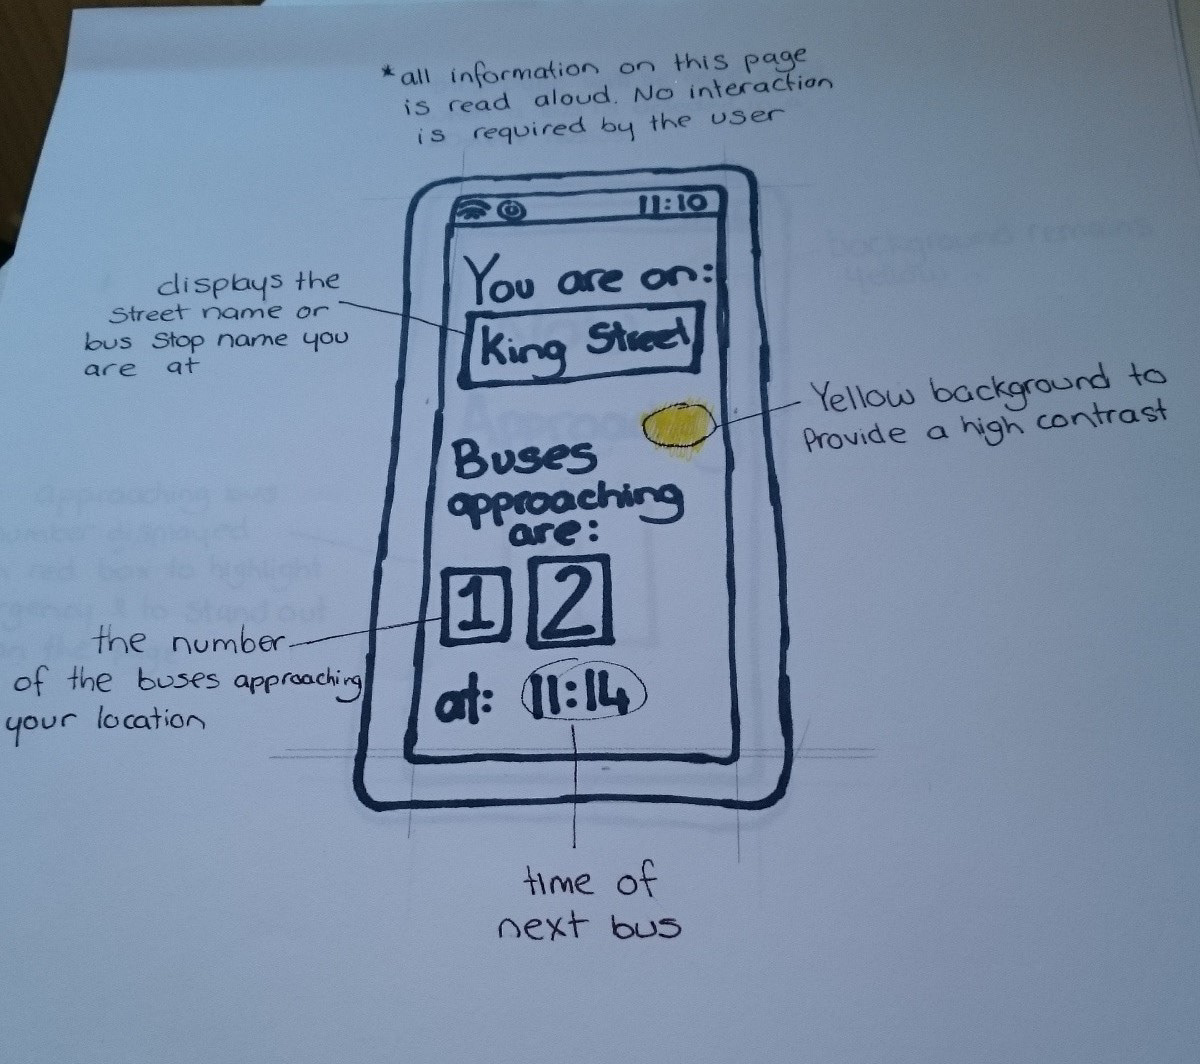 *all information on this page
is read aloud. No interaction
is required by the user
11:10
You are on:
King Street
displays the
street name or
bus stop name you
are at
Yellow background to
Provide a high contrast
Buses
approaching
are:
1 2
the number
of the buses approaching
your location
at: 11:14
time of
next bus
background remains
Yellow
Approaching bus
number displayed
red box to highlight
& to stand out